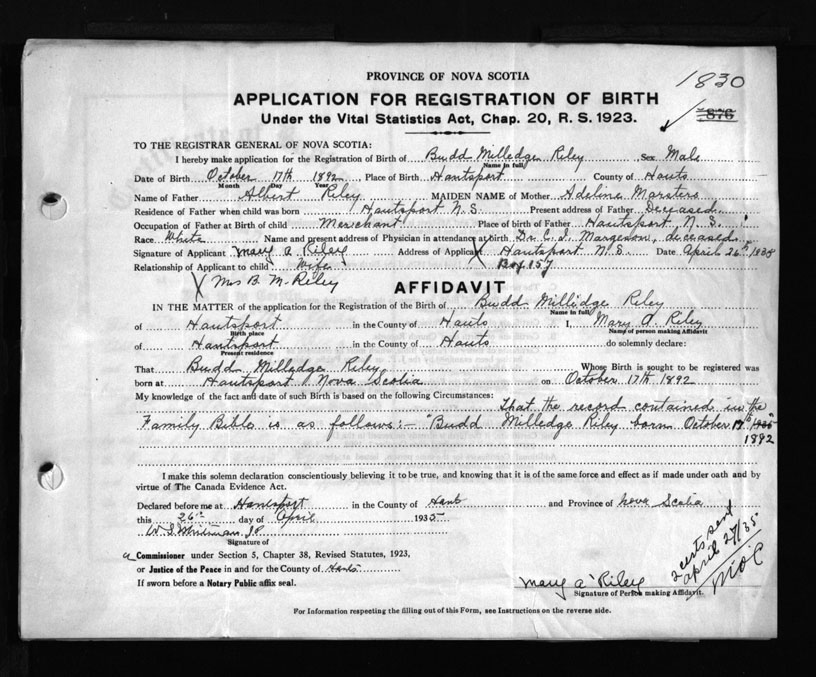 PROVINCE OF NOVA SCOTIA
1830
APPLICATION FOR REGISTRATION OF BIRTH
876
Under the Vital Statistics Act, Chap. 20, R. S. 1923.
TO THE REGISTRAR GENERAL OF NOVA SCOTIA:
I hereby make application for the Registration of Birth of Budd Milledge Riley Sex Male
Name in full
Date of Birth October 17th 1892 Place of Birth Hantsport County of Hants
Month Day Year
Name of Father Albert Riley MAIDEN NAME of Mother Adeline Marsters
Residence of Father when child was born Hantsport N.S. Present address of Father Deceased
Occupation of Father at Birth of child Merchant Place of birth of Father Hantsport, N. S.
Race White Name and present address of Physician in attendance at birth Dr. C. I. Margeson, deceased
Signature of Applicant Mary A Riley Address of Applicant Hantsport N. S. Date April 26th 1935
Relationship of Applicant to child Wife Box 157
Mrs B. M. Riley
AFFIDAVIT
IN THE MATTER of the application for the Registration of the Birth of Budd Millidge Riley
Name in full
of Hantsport in the County of Hants I, Mary A. Riley
Birth place Name of person making Affidavit
of Hantsport in the County of Hants do solemnly declare:
Present residence
That Budd Milledge Riley Whose Birth is sought to be registered was
born at Hantsport Nova Scotia on October 17th 1892
My knowledge of the fact and date of such Birth is based on the following Circumstances:
That the record contained in the
Family Bible is as follows:- "Budd Milledge Riley born October 17th
1892
I make this solemn declaration conscientiously believing it to be true, and knowing that it is of the same force and effect as if made under oath and by
virtue of The Canada Evidence Act.
Declared before me at Hantsport in the County of Hants and Province of Nova Scotia
this 26th day of April 1935
W. S. Whitman, JP
Signature of
a Commissioner under Section 5, Chapter 38, Revised Statutes, 1923,
or Justice of the Peace in and for the County of Hants
If sworn before a Notary Public affix seal.
2 certs sent
april 27/35
Mary A Riley
Signature of Person making Affidavit.
For Information respecting the filling out of this Form, see Instructions on the reverse side.